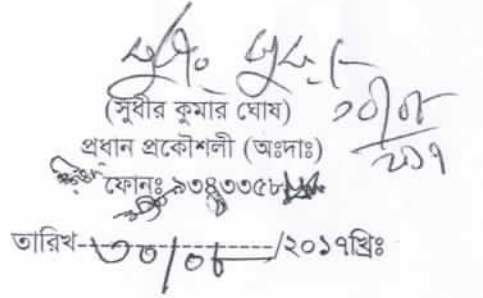 (সুধীর কুমার ঘোষ)
প্রধান প্রকৌশলী (অঃদাঃ)
ফোনঃ ৯৩৪৩৩৫৮
তারিখ- ৩০/০৮ /২০১৭খ্রিঃ